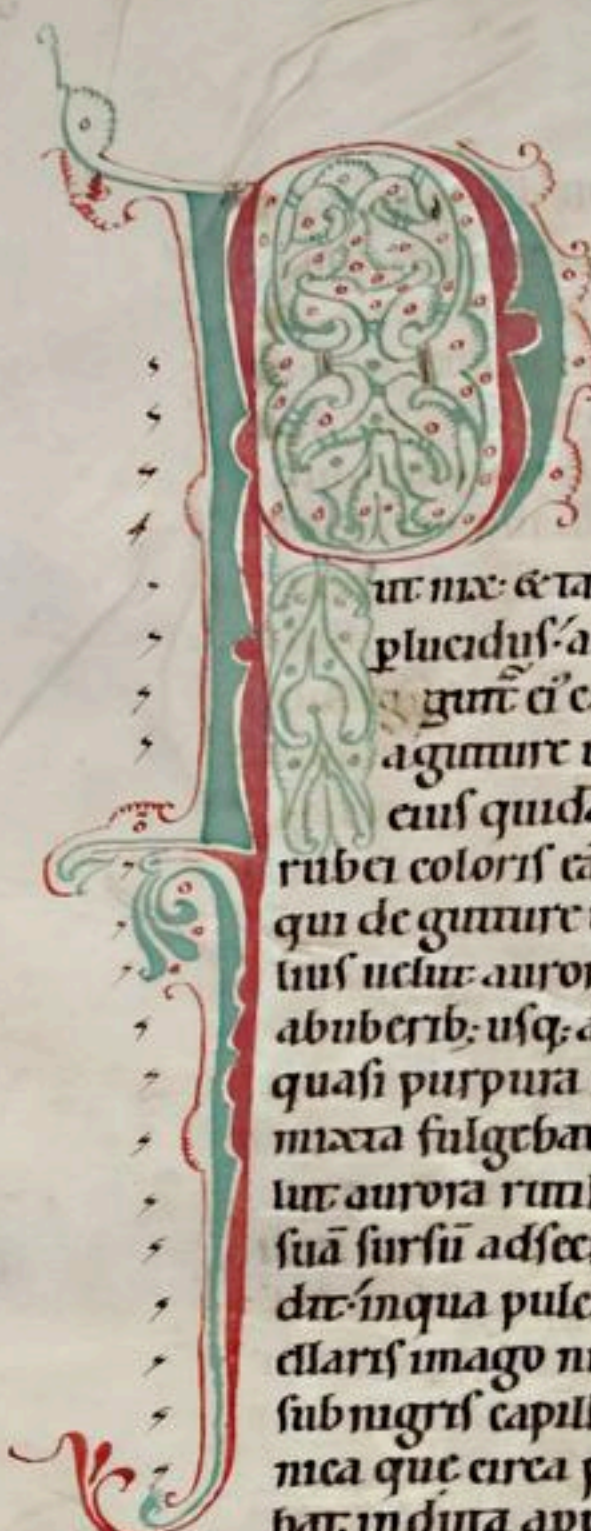 P
ut nix: & ta
plucidus: a
gunt̃ ei' c
a gutture u
eius quidā
rubei coloris eā
qui de gutture u
lius uelut auror
abuberib; usq; a
quasi purpura
mixta fulgebat
lut aurora rutil
suā sursū adsec
dit: inqua pulc
ellaris imago ni
sub nigris capill
nica que circa p
bat induta app